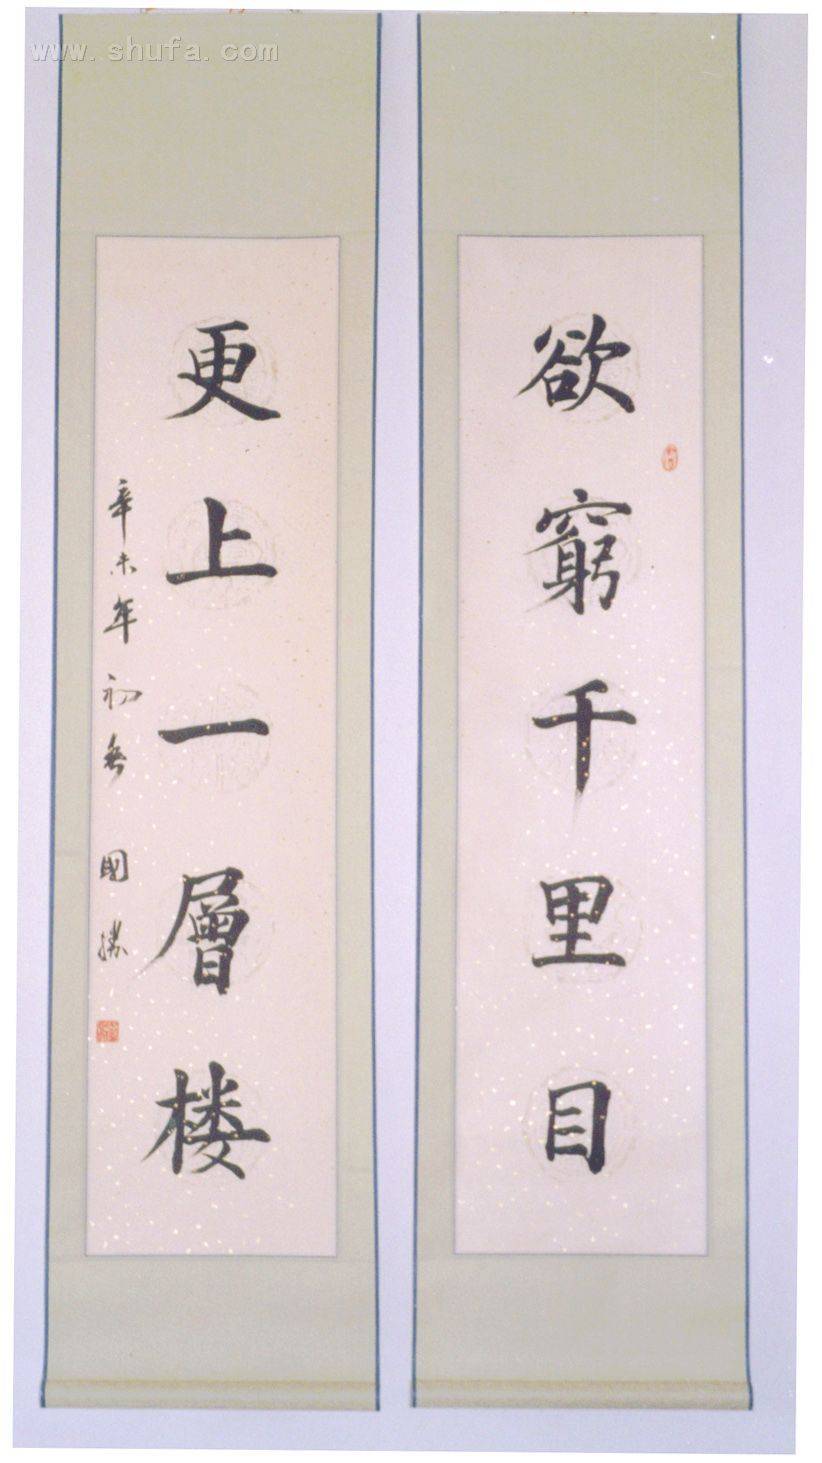 www.shufa.com
欲窮千里目
更上一層楼
辛未年初春 國勝